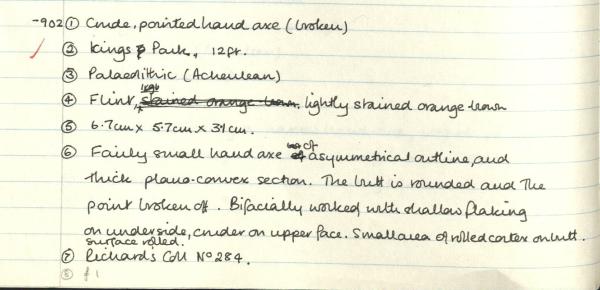 -902 ① Crude, pointed hand axe (broken)
② Kings Park, 12pr.
③ Palaeolithic (Acheulean)
④ Flint, stained orange-brown, lightly stained orange-brown
⑤ 6.7cm x 5.7cm x 3.1cm.
⑥ Fairly small hand axe of asymmetrical outline, and
thick plano-convex section. The butt is rounded and The
point broken off. Bifacially worked with shallow flaking
on underside, cruder on upper face. Small area of rolled cortex on butt.
surface rolled.
⑦ Richards Coll Nº 284.
⑧ f 1